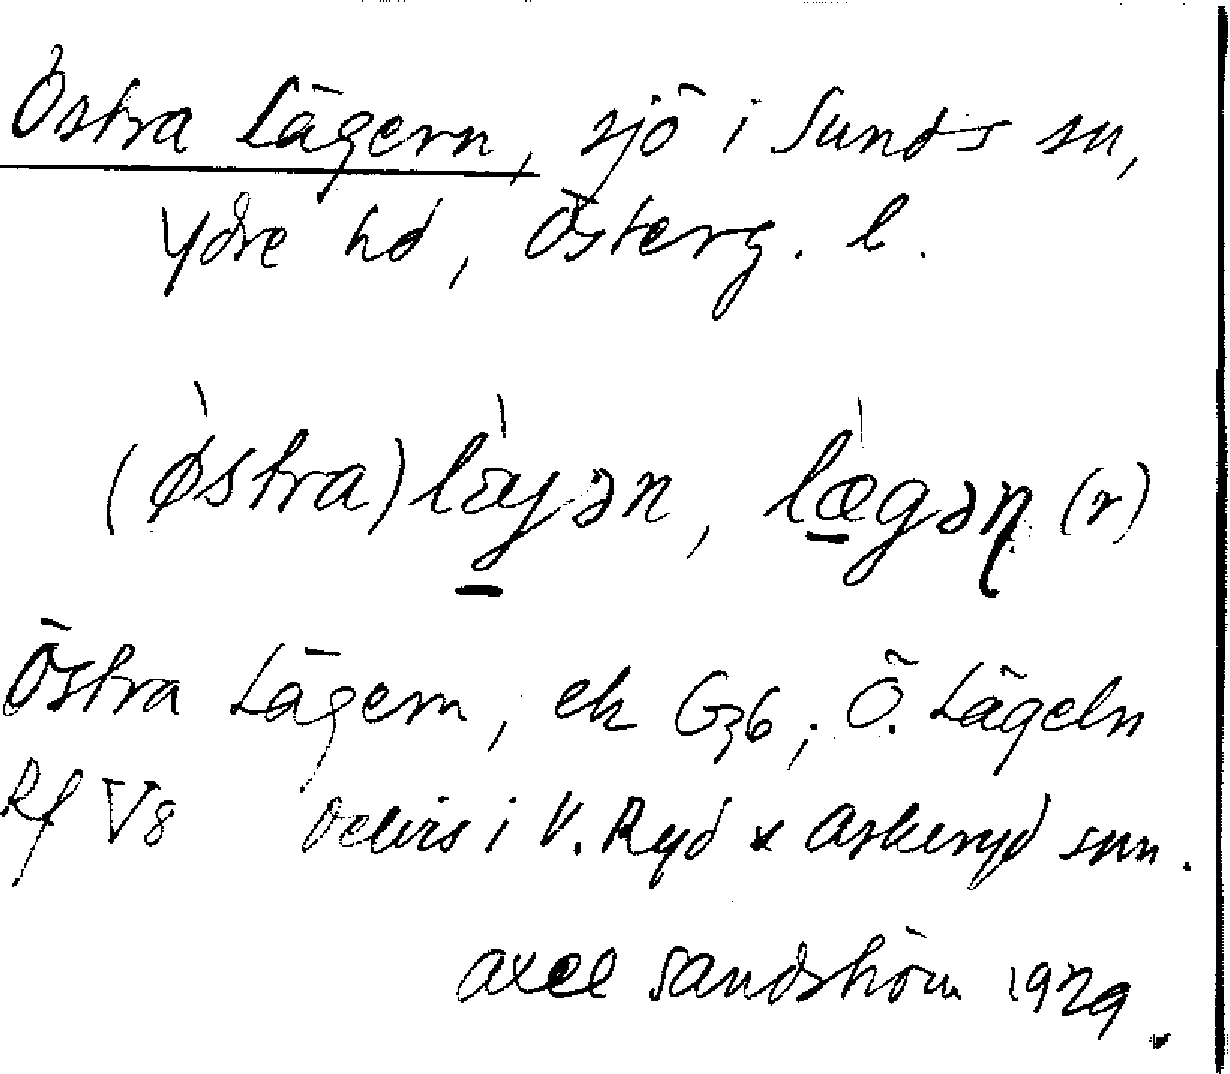 Östra Lägern, sjö i Sunds sn,
Ydre hd, Österg. l.
(østra) lægən, lægəṇ (r)
Östra Lägern, ek G36; Ö. Lägeln
Rf V8 Delvis i V. Ryd x Askeryd snn.
Axel Sandström 1929.